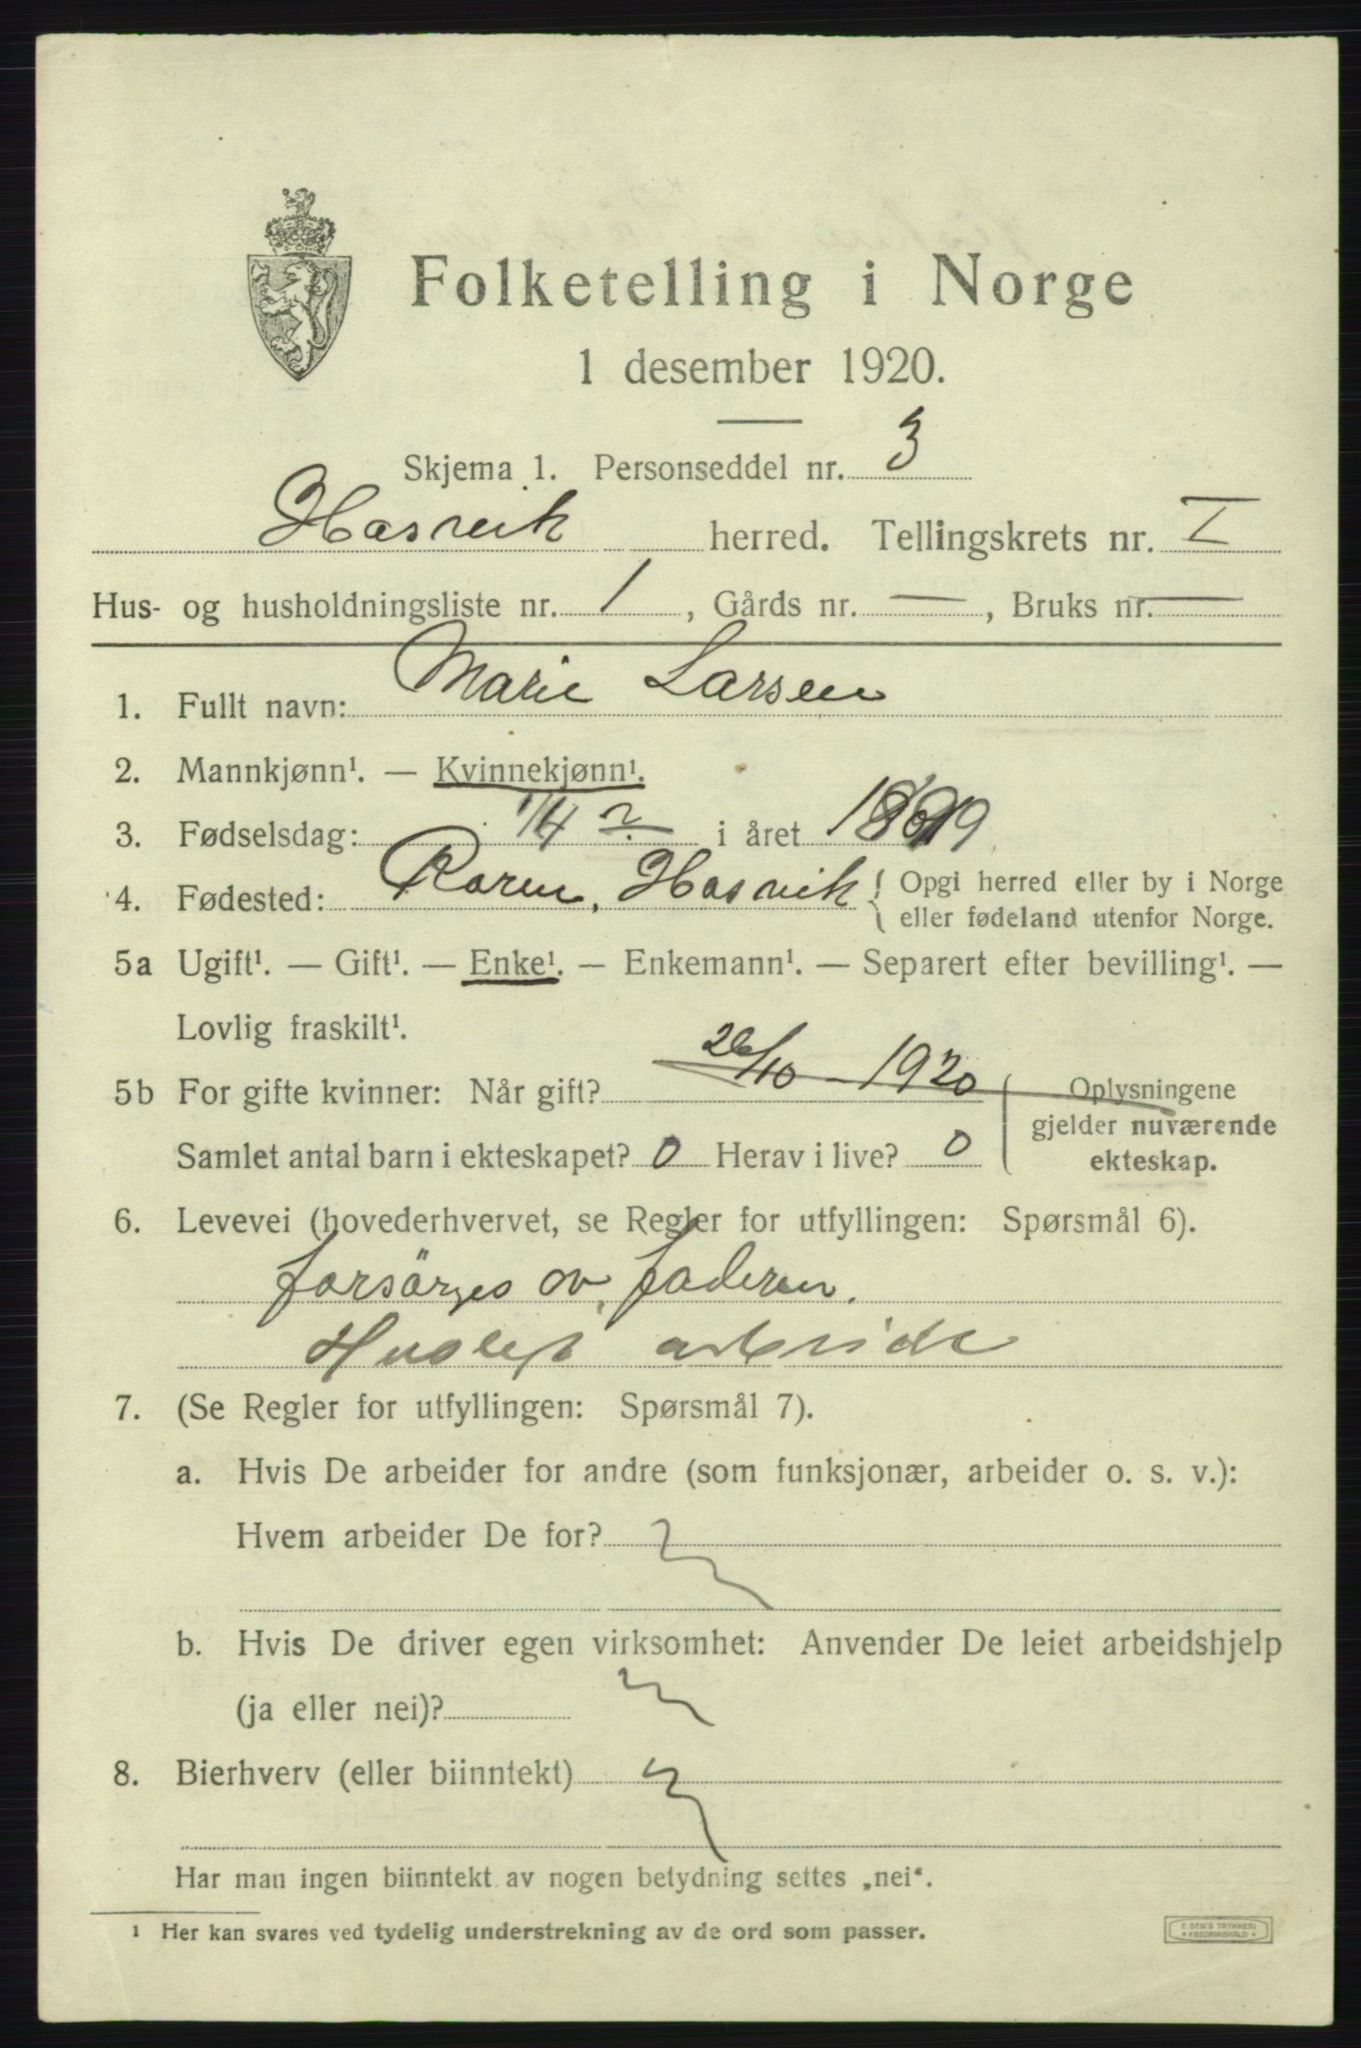 Folketelling i Norge
1 desember 1920.
Skjema 1. Personseddel nr. 3
Hasveik herred. Tellingskrets nr. I
Hus- og husholdningsliste nr. 1, Gårds nr. —, Bruks nr. —
1. Fullt navn: Marie Larsen
2. Mannkjønn¹. — Kvinnekjønn¹.
3. Fødselsdag: 1/4 ? i året
4. Fødested: Hasveik { Opgi herred eller by i Norge
eller fødeland utenfor Norge.
5a Ugift¹. — Gift¹. — Enke¹. — Enkemann¹. — Separert efter bevilling¹. —
Lovlig fraskilt¹.
5b For gifte kvinner: Når gift? 26/10 - 1920 ( Oplysningene
gjelder nuværende
ekteskap.
Samlet antal barn i ekteskapet? 0 Herav i live? 0
6. Levevei (hovederhvervet, se Regler for utfyllingen: Spørsmål 6).
forsörges av faderen.
arbeide
7. (Se Regler for utfyllingen: Spørsmål 7).
a. Hvis De arbeider for andre (som funksjonær, arbeider o. s. v.):
Hvem arbeider De for?
b. Hvis De driver egen virksomhet: Anvender De leiet arbeidshjelp
(ja eller nei)?
8. Bierhverv (eller biinntekt)
Har man ingen biinntekt av nogen betydning settes „nei“.
¹ Her kan svares ved tydelig understrekning av de ord som passer.
E. SEM'S TRYKKERI
FREDRIKSHALD